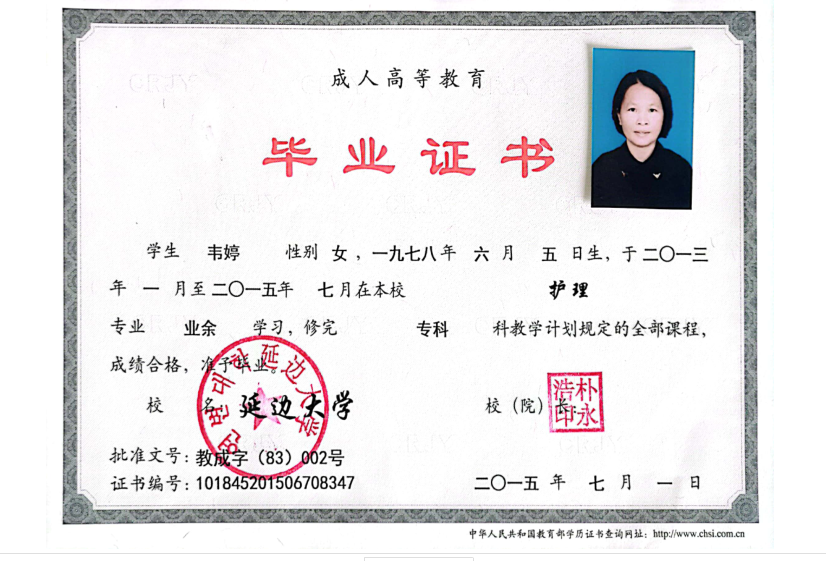 成人高等教育
毕业证书
学生 韦婷 性别 女，一九七八年 六 月 五 日生，于二〇一三
年 一 月至二〇一五年 七月在本校 护理
专业 业余 学习，修完 专科 科教学计划规定的全部课程，
成绩合格，准予毕业。
校 名 延边大学 校（院）长
연변대학 延边大学
朴永浩印
批准文号：教成字（83）002号
证书编号：101845201506708347
二〇一五 年 七 月 一 日
中华人民共和国教育部学历证书查询网址：http://www.chsi.com.cn